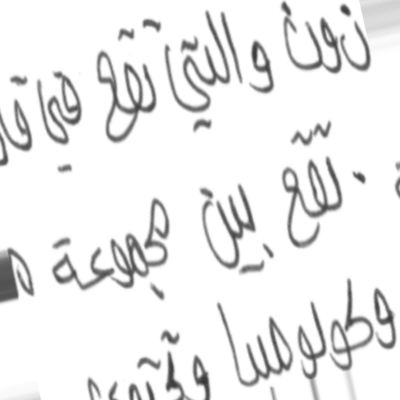 نون والتي تقع في قا
. تقع بين مجموعة م
وكولومبيا وتحتوي